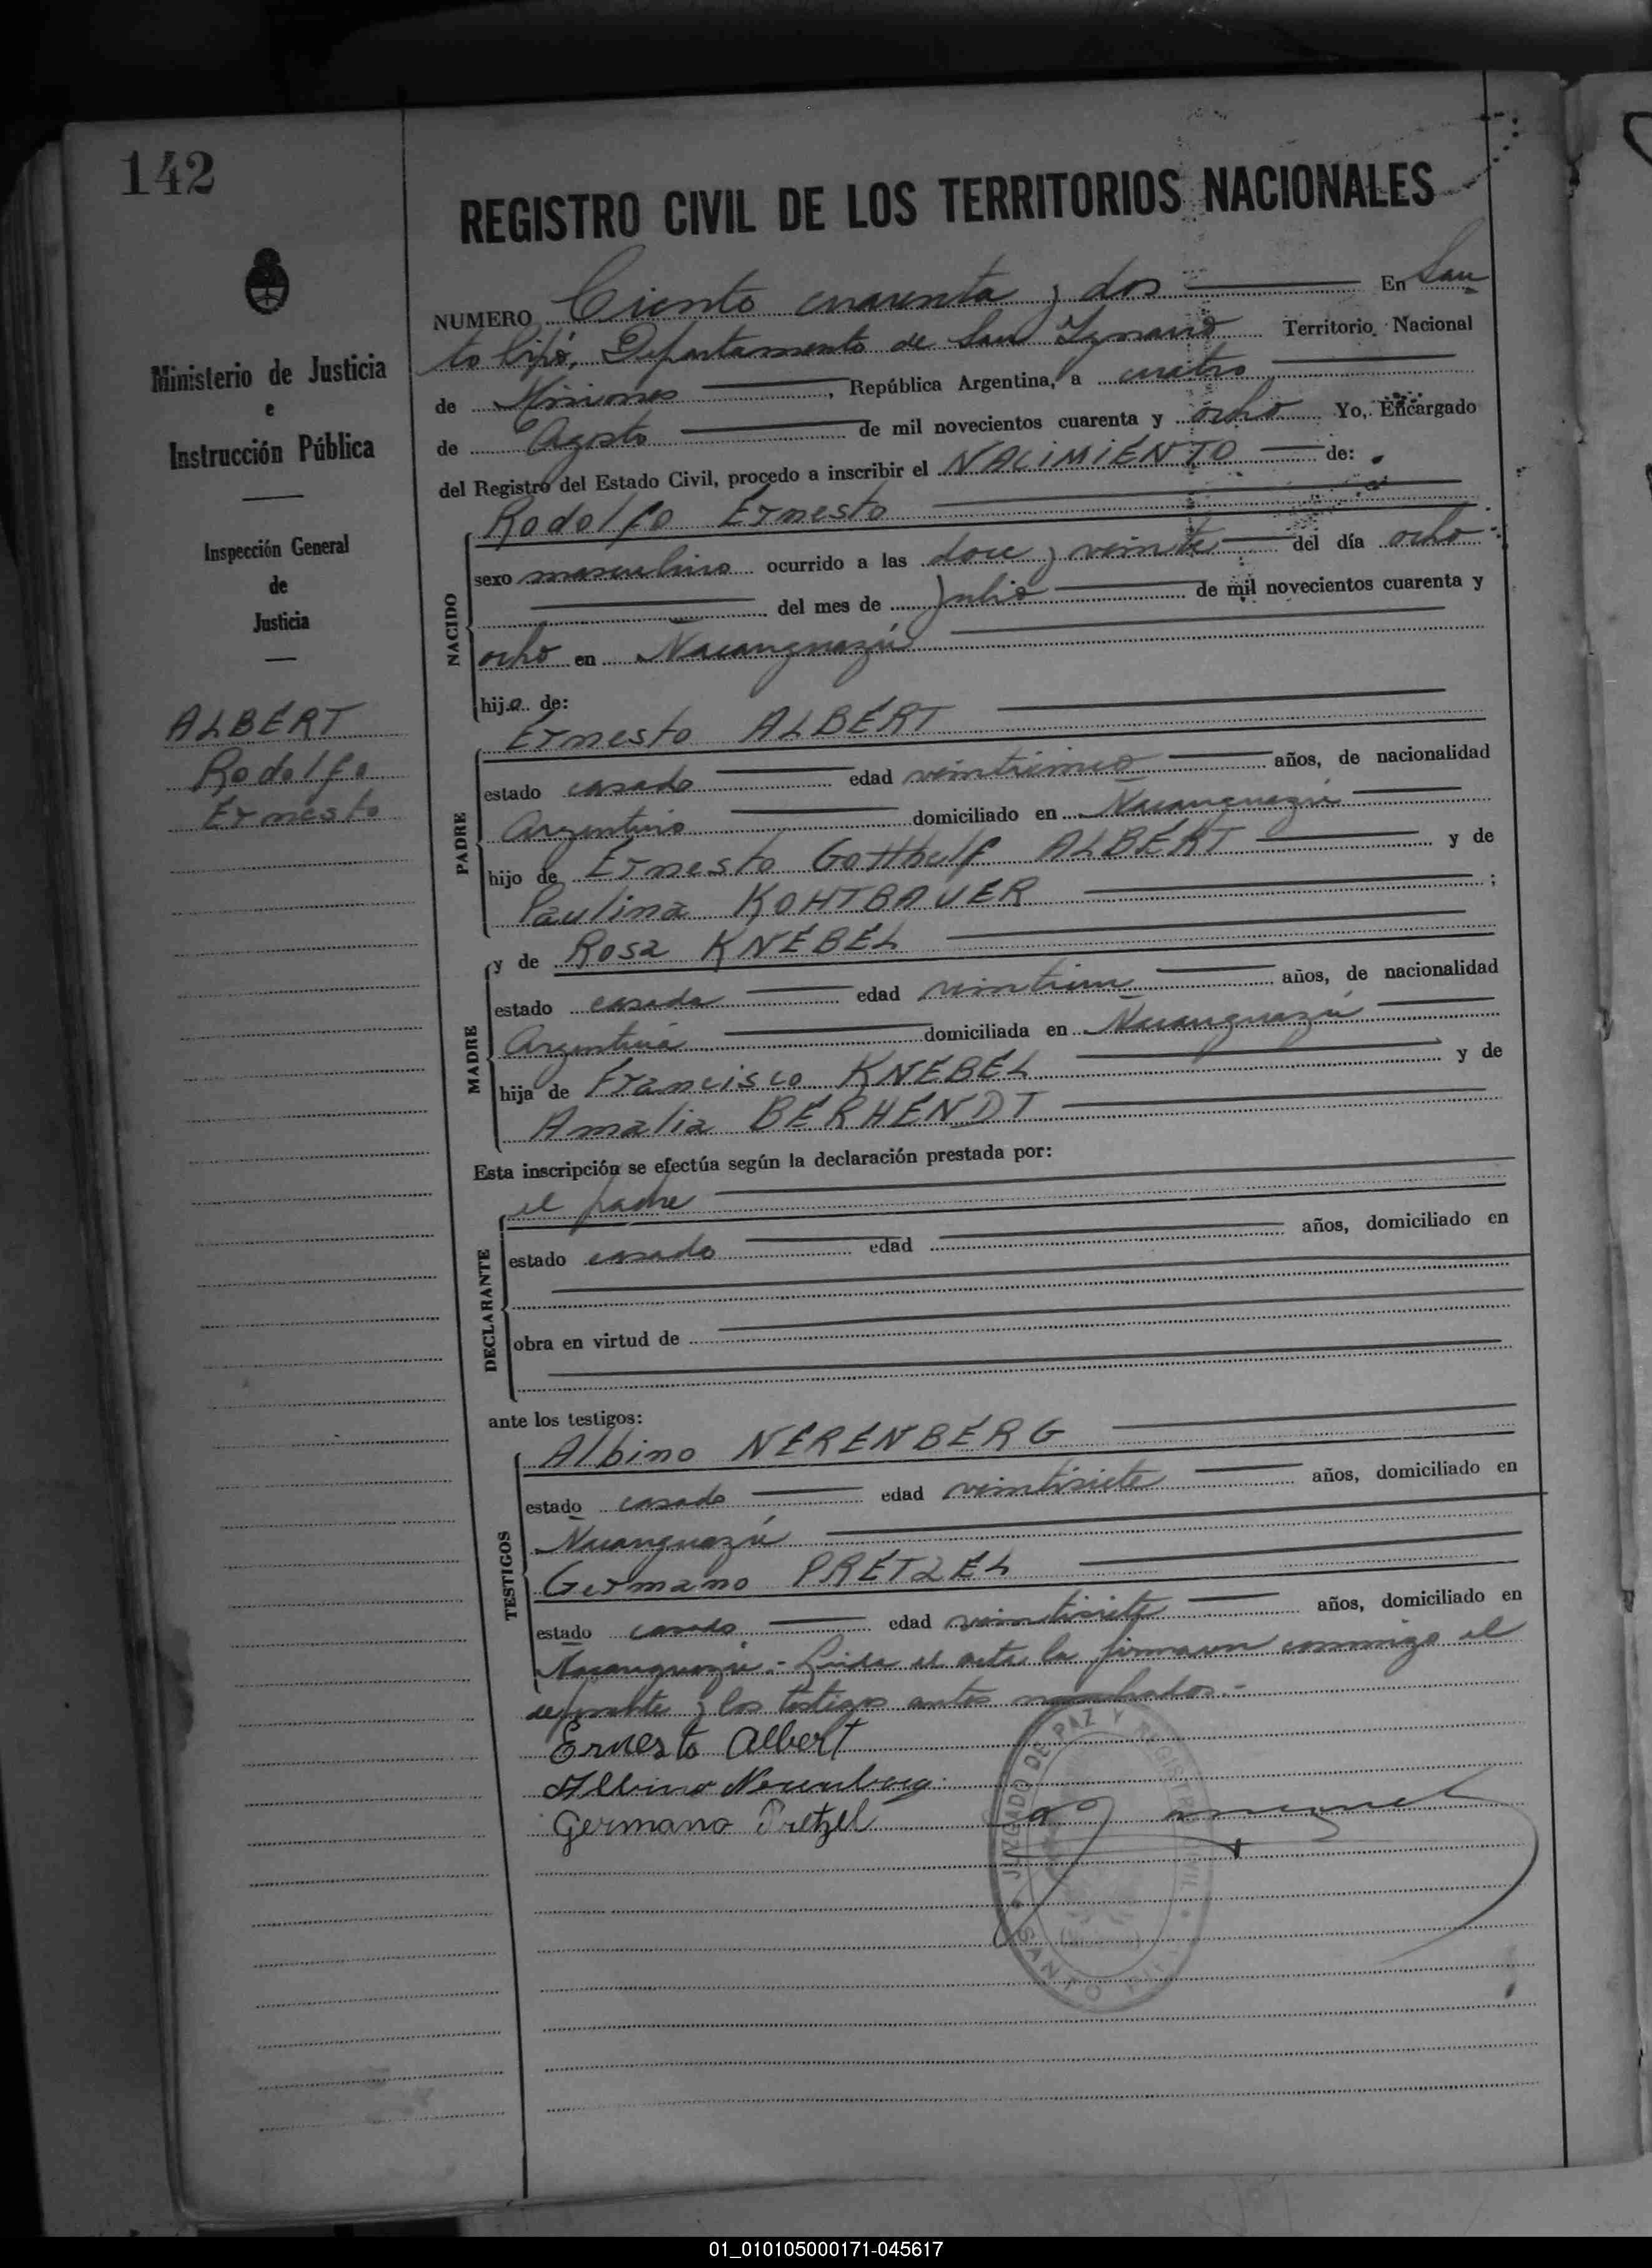 142
Ministerio de Justicia
e
Instrucción Pública
Inspección General
de
Justicia
ALBERT
Rodolfo
Ernesto
REGISTRO CIVIL DE LOS TERRITORIOS NACIONALES
NUMERO Ciento cuarenta y dos En San
to Pipó, Departamento de San Ignacio Territorio Nacional
de Misiones, República Argentina, a cuatro
de Agosto de mil novecientos cuarenta y ocho Yo, Encargado
del Registro del Estado Civil, procedo a inscribir el NACIMIENTO de:
NACIDO
Rodolfo Ernesto
sexo masculino ocurrido a las doce y veinte del día ocho
del mes de Julio de mil novecientos cuarenta y
ocho en Ñacanguazú
hijo de:
PADRE
Ernesto ALBERT
estado casado edad veinticinco años, de nacionalidad
Argentino domiciliado en Ñacanguazú
hijo de Ernesto Gotthelf ALBERT y de
Paulina KOHTBAUER ;
MADRE
y de Rosa KNEBEL
estado casada edad años, de nacionalidad
Argentina domiciliada en Ñacanguazú
hija de Francisco KNEBEL y de
Amalia BERHENDT
Esta inscripción se efectúa según la declaración prestada por:
DECLARANTE
el padre
estado casado edad años, domiciliado en
obra en virtud de
ante los testigos:
TESTIGOS
Albino NERENBERG
estado casado edad veintisiete años, domiciliado en
Ñacanguazú
Germano PRETZEL
estado casado edad veintisiete años, domiciliado en
Ñacanguazú.- Leída el acta la firmaron conmigo el
deponente y los testigos antes nombrados.-
Ernesto Albert
Albino Nerenberg
Germano Pretzel
JUZGADO DE PAZ Y REGISTRO CIVIL
SANTO
01_010105000171-045617